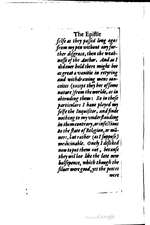 The Epistle
selfe as they passed long agoe
from my pen without any fur-
ther disgrace, then the weak-
nesse of the Author. And as I
did ever hold there might bee
as great a vanitie in retyring
and withdrawing mens con-
ceites (except they bee of some
nature) from the world, as in
obtruding them: So in these
particulars I have played my
selfe the Inquisitor, and find
nothing to my understanding
in them contrary, or infectious
to the state of Religion, or ma-
ners, but rather (as I suppose)
medicinable. Onely I disliked
now to put them out, because
they will bee like the late new
halfe-pence, which though the
silver were good, yet the peeces
were